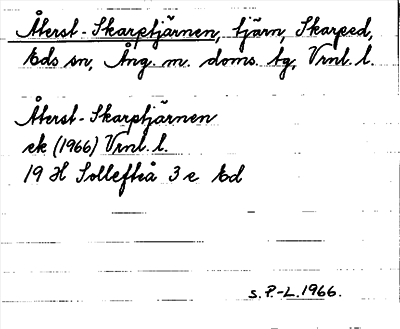 Återst-Skarptjärnen, tjärn, Skarped,
Eds sn, Ång. m. doms. tg, Vrnl. l.
Återst-Skarptjärnen
ek (1966) Vrnl. l.
19 H Sollefteå 3 e Ed
s. P.-L. 1966.